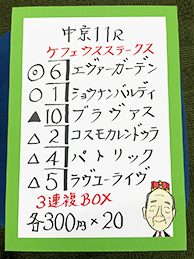 中京11R
ケフェウスステークス
◎ 6 エヴァーガーデン
○ 1 ショウナンバルディ
▲ 10 ブラヴァス
△ 2 コスモカレンドゥラ
△ 4 パトリック
△ 5 ラヴユーライヴ
3連複BOX
各300円×20